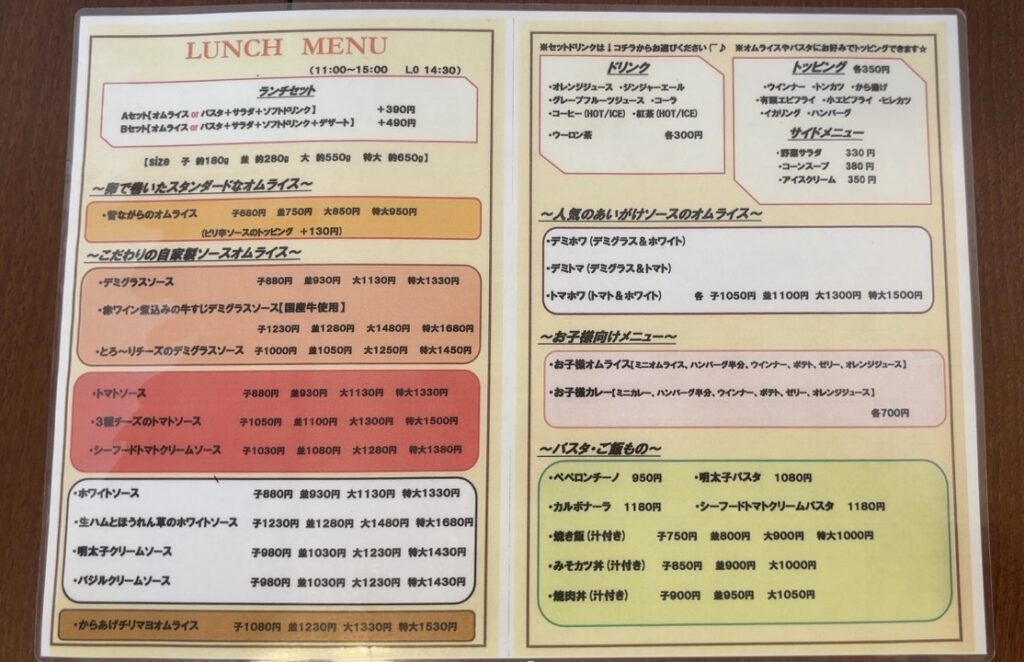 LUNCH MENU
(11:00~15:00 LO 14:30)
ランチセット
Aセット【オムライス or パスタ+サラダ+ソフトドリンク】 +390円
Bセット【オムライス or パスタ+サラダ+ソフトドリンク+デザート】 +490円
【size 子 約180g 並 約280g 大 約550g 特大 約650g】
~卵で巻いたスタンダードなオムライス~
・昔ながらのオムライス 子680円 並750円 大850円 特大950円
(ピリ辛ソースのトッピング +130円)
~こだわりの自家製ソースオムライス~
・デミグラスソース 子880円 並930円 大1130円 特大1330円
・赤ワイン煮込みの牛すじデミグラスソース【国産牛使用】
子1230円 並1280円 大1480円 特大1680円
・とろ~りチーズのデミグラスソース 子1000円 並1050円 大1250円 特大1450円
・トマトソース 子880円 並930円 大1130円 特大1330円
・3種チーズのトマトソース 子1050円 並1100円 大1300円 特大1500円
・シーフードトマトクリームソース 子1030円 並1080円 大1280円 特大1380円
・ホワイトソース 子880円 並930円 大1130円 特大1330円
・生ハムとほうれん草のホワイトソース 子1230円 並1280円 大1480円 特大1680円
・明太子クリームソース 子980円 並1030円 大1230円 特大1430円
・バジルクリームソース 子980円 並1030円 大1230円 特大1430円
・からあげチリマヨオムライス 子1080円 並1230円 大1330円 特大1530円
※セットドリンクは↓コチラからお選びください(⌒♪
ドリンク
・オレンジジュース ・ジンジャーエール
・グレープフルーツジュース ・コーラ
・コーヒー(HOT/ICE) ・紅茶(HOT/ICE)
・ウーロン茶 各300円
※オムライスやパスタにお好みでトッピングできます☆
トッピング 各350円
・ウインナー ・トンカツ ・から揚げ
・有頭エビフライ ・小エビフライ ・ヒレカツ
・イカリング ・ハンバーグ
サイドメニュー
・野菜サラダ 330円
・コーンスープ 380円
・アイスクリーム 350円
~人気のあいがけソースのオムライス~
・デミホワ(デミグラス&ホワイト)
・デミトマ(デミグラス&トマト)
・トマホワ(トマト&ホワイト) 各 子1050円 並1100円 大1300円 特大1500円
~お子様向けメニュー~
・お子様オムライス【ミニオムライス、ハンバーグ半分、ウインナー、ポテト、ゼリー、オレンジジュース】
・お子様カレー【ミニカレー、ハンバーグ半分、ウインナー、ポテト、ゼリー、オレンジジュース】
各700円
~パスタ・ご飯もの~
・ペペロンチーノ 950円 ・明太子パスタ 1080円
・カルボナーラ 1180円 ・シーフードトマトクリームパスタ 1180円
・焼き飯(汁付き) 子750円 並800円 大900円 特大1000円
・みそカツ丼(汁付き) 子850円 並900円 大1000円
・焼肉丼(汁付き) 子900円 並950円 大1050円